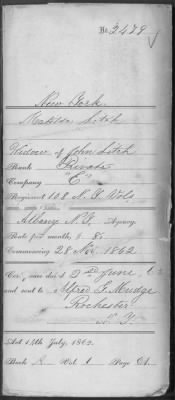 No. 3479
New York
Matilda Litch
Widow of John Litch
Rank Private
Company "E"
Regiment 108 N.Y. Vols
Albany N.Y. Agency.
Rate per month, $ 8.
Commencing 28 Nov. 1862
Cer. was dat'd 2nd June
and sent to Alfred G. Mudge
Rochester
N.Y.
Act 14th July, 1862.
Book Vol. Page